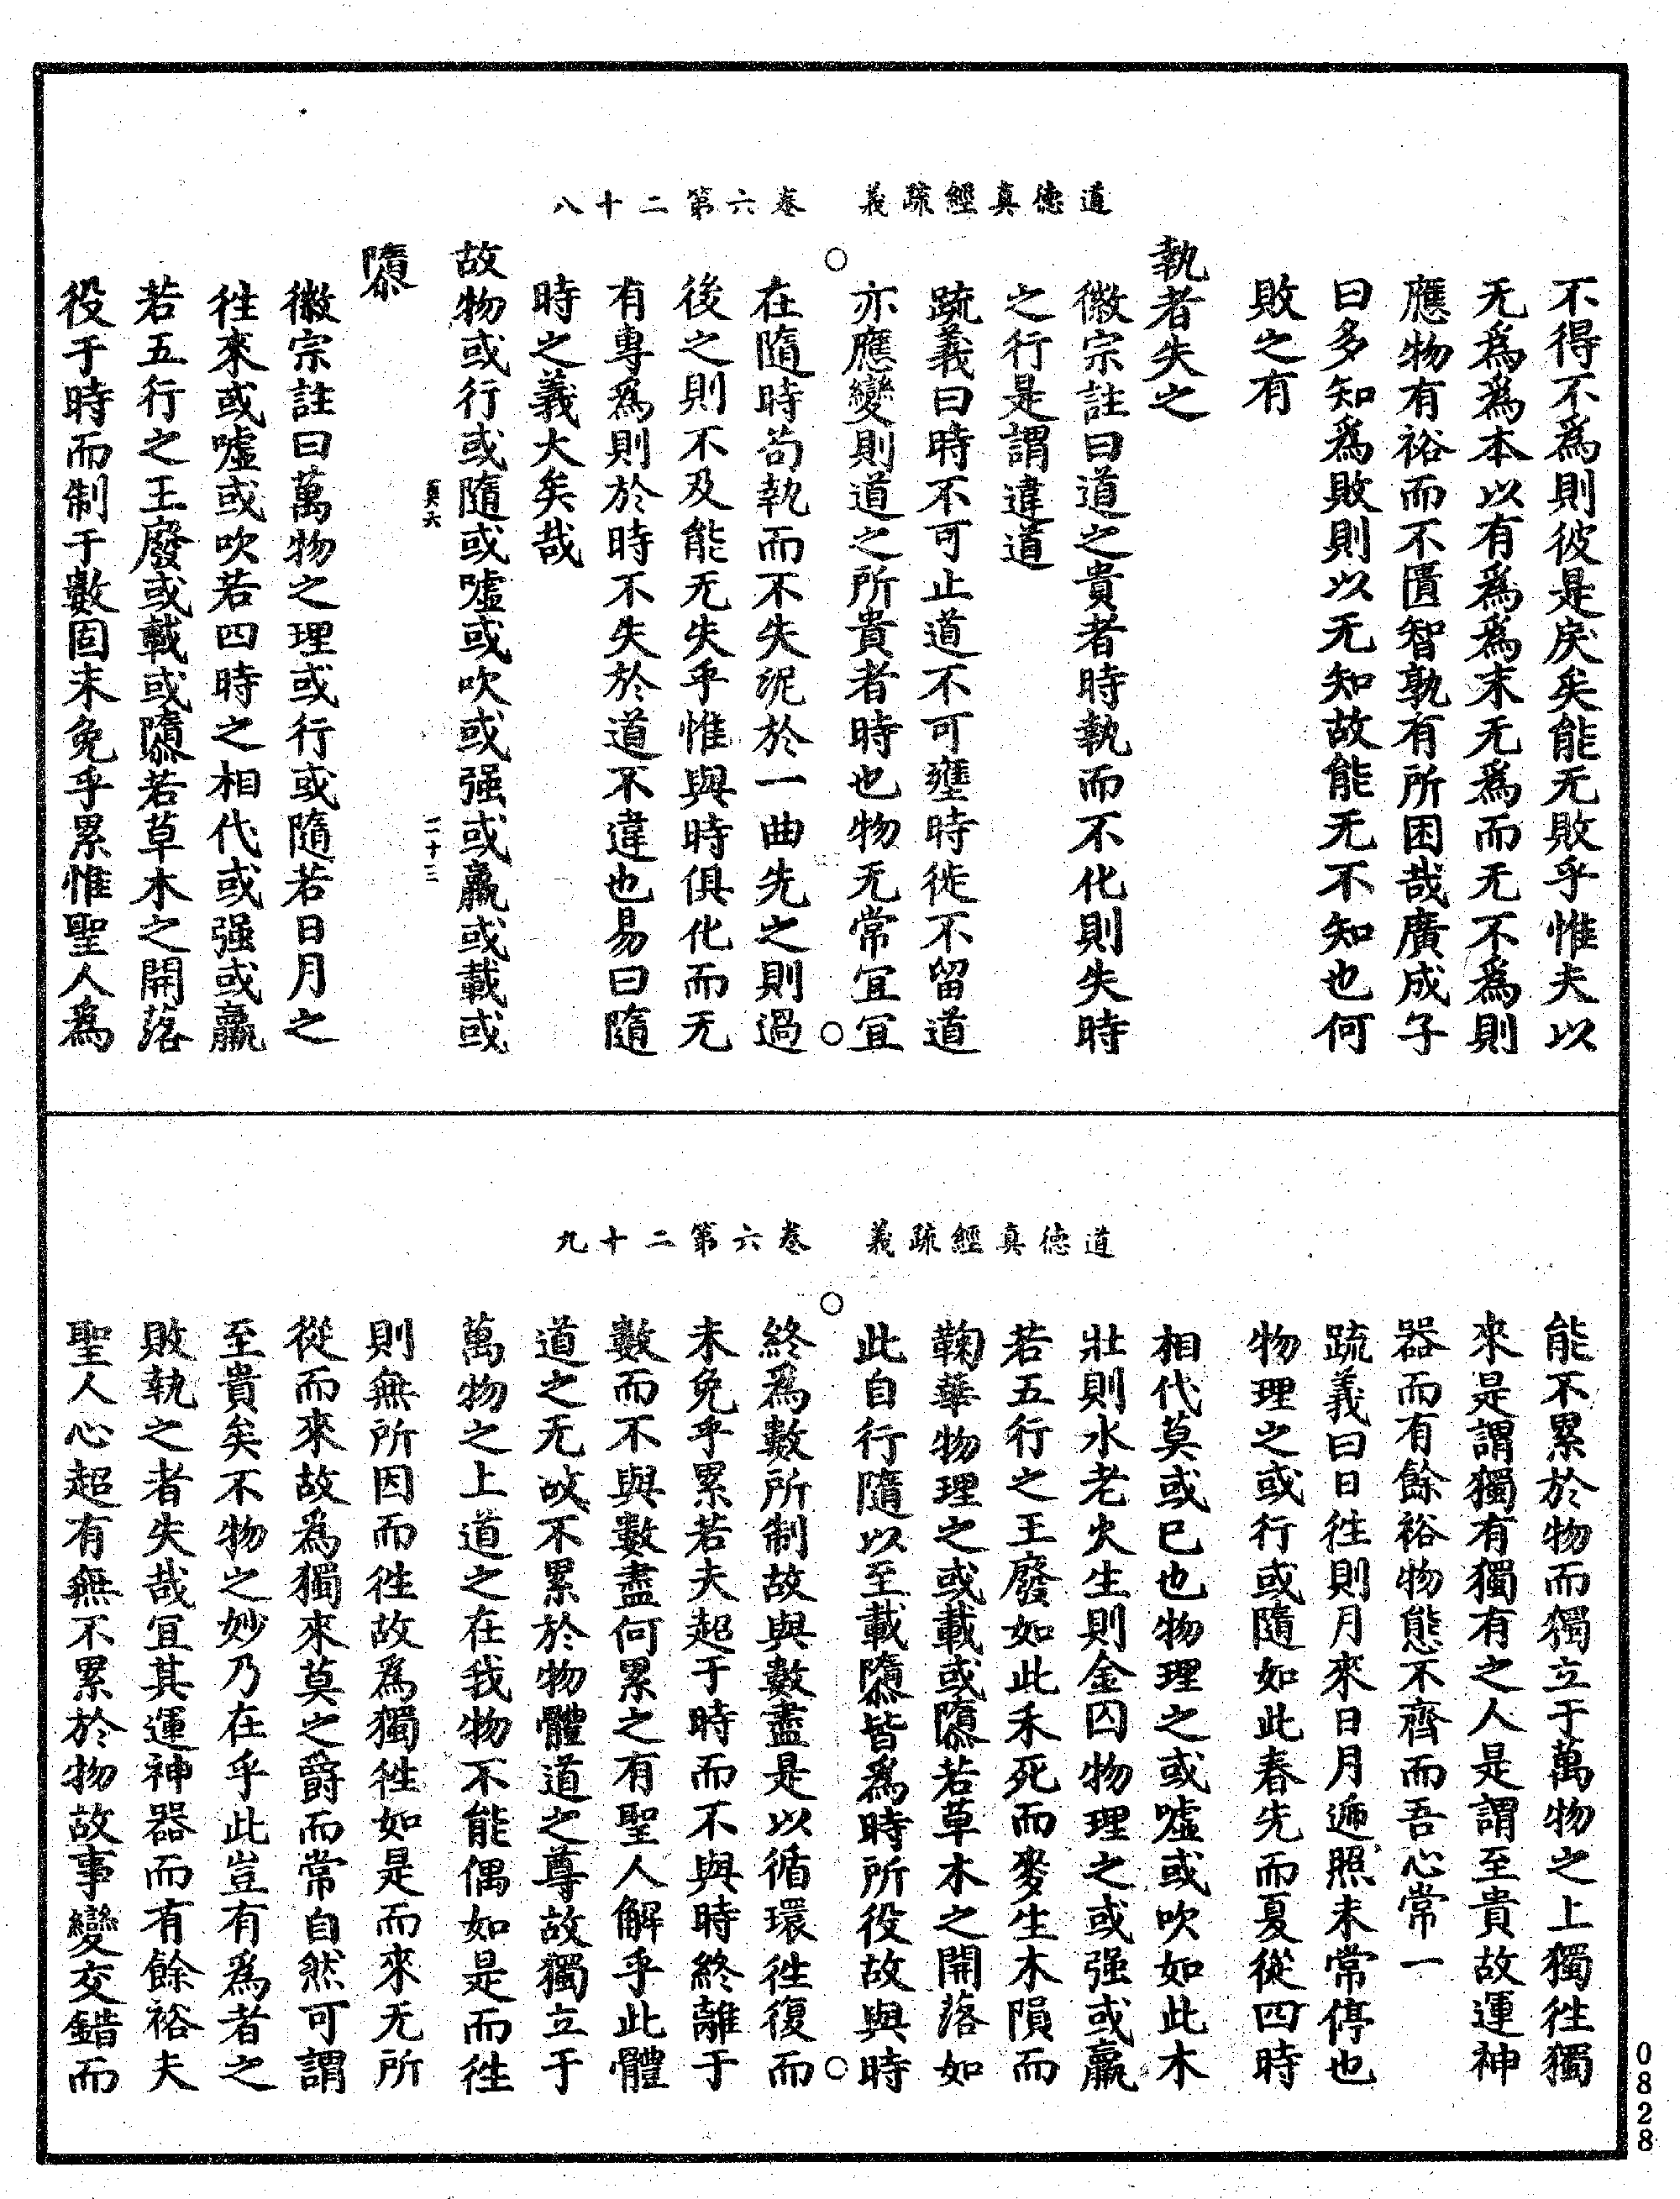 道德真經疏義　卷六第二十八
不得不爲則彼是戾矣能无敗乎惟夫以
无爲爲本以有爲爲末无爲而无不爲則
應物有裕而不匱智孰有所困哉廣成子
曰多知爲敗則以无知故能无不知也何
敗之有
執者失之
徽宗註曰道之貴者時執而不化則失時
之行是謂違道
疏義曰時不可止道不可壅時徙不留道
亦應變則道之所貴者時也物无常宜宜
在隨時苟執而不失泥於一曲先之則過
後之則不及能无失乎惟與時俱化而无
有專爲則於時不失於道不違也易曰隨
時之義大矣哉
故物或行或隨或噓或吹或强或羸或載或
莫六　二十三
隳
徽宗註曰萬物之理或行或隨若日月之
徃來或噓或吹若四時之相代或强或羸
若五行之王廢或載或隳若草木之開落
役于時而制于數固未免乎累惟聖人爲
道德真經疏義　卷六第二十九
能不累於物而獨立于萬物之上獨徃獨
來是謂獨有獨有之人是謂至貴故運神
器而有餘裕物態不齊而吾心常一
疏義曰日徃則月來日月遞照未常停也
物理之或行或隨如此春先而夏從四時
相代莫或已也物理之或噓或吹如此木
壯則水老火生則金囚物理之或强或羸
若五行之王廢如此禾死而麥生木隕而
鞠華物理之或載或隳若草木之開落如
此自行隨以至載隳皆爲時所役故與時
終爲數所制故與數盡是以循環徃復而
未免乎累若夫超于時而不與時終離于
數而不與數盡何累之有聖人解乎此體
道之无故不累於物體道之尊故獨立于
萬物之上道之在我物不能偶如是而徃
則無所因而徃故爲獨徃如是而來无所
從而來故爲獨來莫之爵而常自然可謂
至貴矣不物之妙乃在乎此豈有爲者之
敗執之者失哉宜其運神器而有餘裕夫
聖人心超有無不累於物故事變交錯而
0828